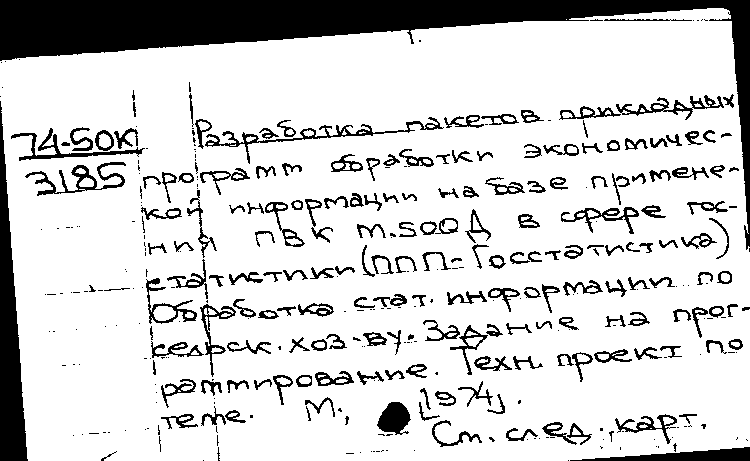 1.
74-50К
3185
Разработка пакетов прикладных
программ обработки экономичес-
кой информации на базе примене-
ния ПВК М.500Д в сфере гос-
статистики (ППП-Госстатистика)
Обработка стат. информации по
сельск. хоз-ву. Задание на прог-
раммирование. Техн. проект по
теме. М., [1974].
См. след. карт.